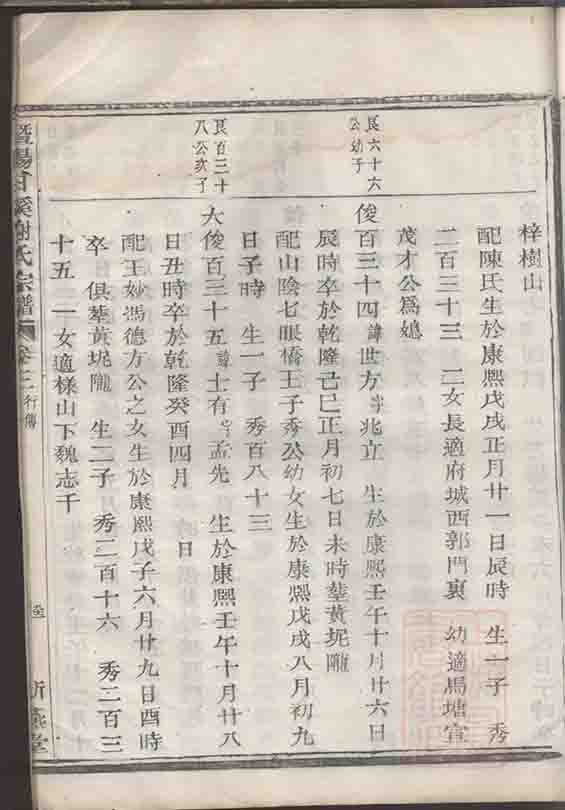 梓樹山
配陳氏生於康熙戊戌正月廿一日辰時 生一子 秀
二百三十三 二女長適府城西郭門裏 幼適馬塘宣
茂才公爲媳
艮六十六
公幼子
俊百三十四諱世方字兆立 生於康熙壬午十月廿六日
辰時卒於乾隆己巳正月初七日未時葬黃坭隴
配山陰七眼橋王子秀公幼女生於康熙戊戌八月初九
日子時 生一子 秀百八十三
艮百三十
八公次子
大俊百三十五諱士有字孟先 生於康熙壬午十月廿八
日丑時卒於乾隆癸酉四月 日
配王妙馮德方公之女生於康熙戊子六月廿九日酉時
卒 俱葬黃坭隴 生二子 秀二百十六 秀二百三
十五 一女適樣山下魏志千
暨陽甘溪謝氏宗譜 卷三 行傳